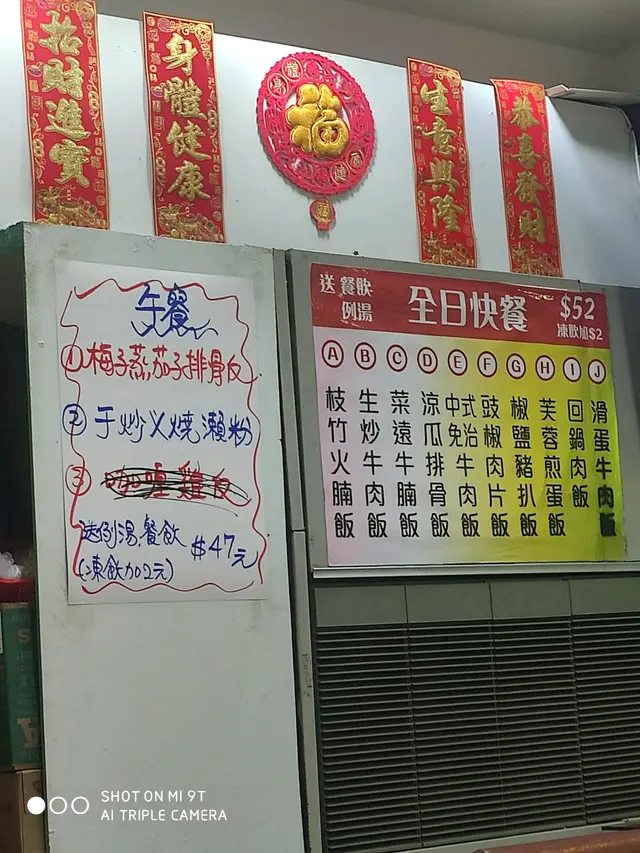 招財進寶
身體健康
福
生意興隆
恭喜發財
午餐
① 梅子蒸茄子排骨反
② 干炒义燒瀨粉
③
送例湯,餐飲
(凍飲加2元)
$47元
送餐飲
例湯
全日快餐
$52
凍飲加$2
A B C D E F G H I J
枝竹火腩飯
生炒牛肉飯
菜遠牛腩飯
涼瓜排骨飯
中式免治牛肉飯
豉椒肉片飯
椒鹽豬扒飯
芙蓉煎蛋飯
回鍋肉飯
滑蛋牛肉飯
SHOT ON MI 9T
AI TRIPLE CAMERA